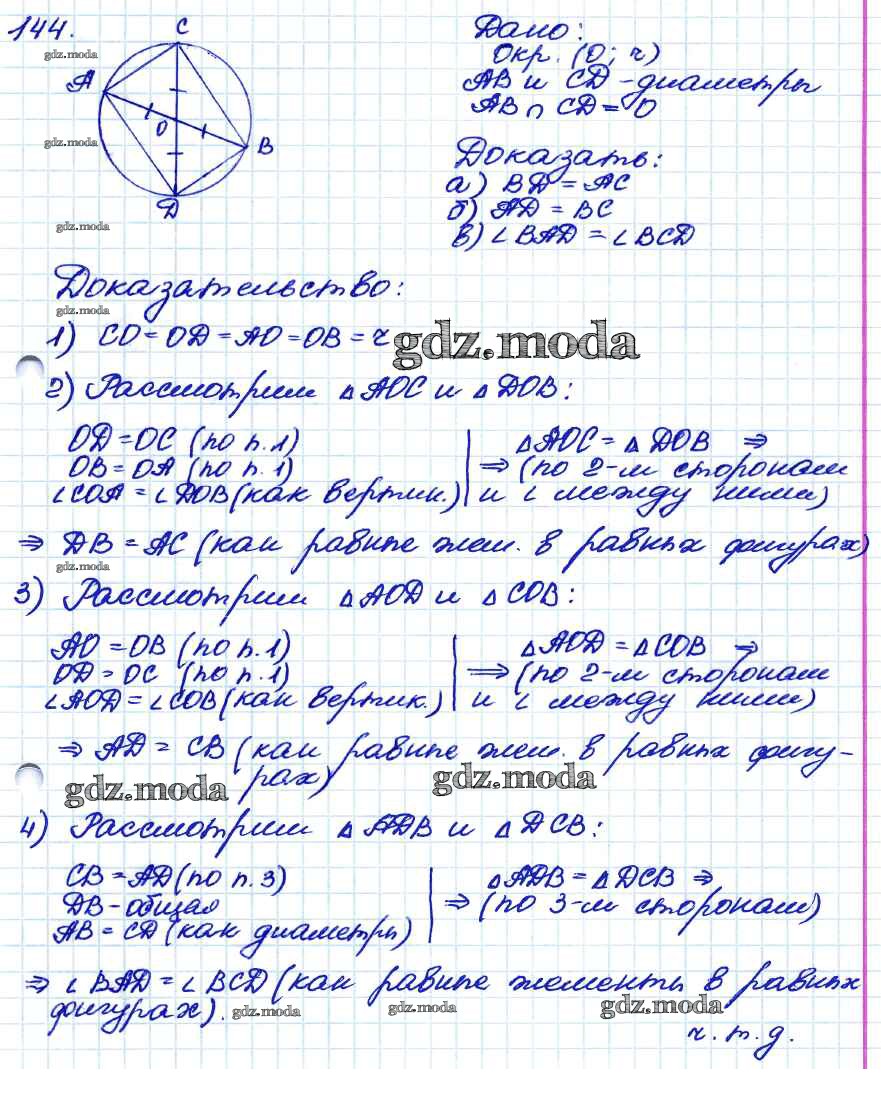 144.
gdz.moda
C
A
O
B
D
gdz.moda
gdz.moda
Дано:
Окр. (O; r)
AB и CD - диаметры
AB ∩ CD = O
Доказать:
а) BD = AC
б) AD = BC
в) ∠BAD = ∠BCD
Доказательство:
gdz.moda
1) CO = OD = AO = OB = r
gdz.moda
2) Рассмотрим △AOC и △DOB:
OD = OC (по п.1)
OB = OA (по п.1)
∠COA = ∠DOB (как вертик.)
△AOC = △DOB ⇒
⇒ (по 2-м сторонам
и ∠ между ними)
⇒ DB = AC (как равные элем. в равных фигурах)
gdz.moda
3) Рассмотрим △AOD и △COB:
AO = OB (по п.1)
OD = OC (по п.1)
∠AOD = ∠COB (как вертик.)
△AOD = △COB ⇒
⇒ (по 2-м сторонам
и ∠ между ними)
⇒ AD = CB (как равные элем. в равных фигу-
рах)
gdz.moda
gdz.moda
4) Рассмотрим △ADB и △DCB:
CB = AD (по п.3)
DB - общая
AB = CD (как диаметры)
△ADB = △DCB ⇒
⇒ (по 3-м сторонам)
⇒ ∠BAD = ∠BCD (как равные элементы в равных
фигурах).
gdz.moda
gdz.moda
gdz.moda
ч.т.д.